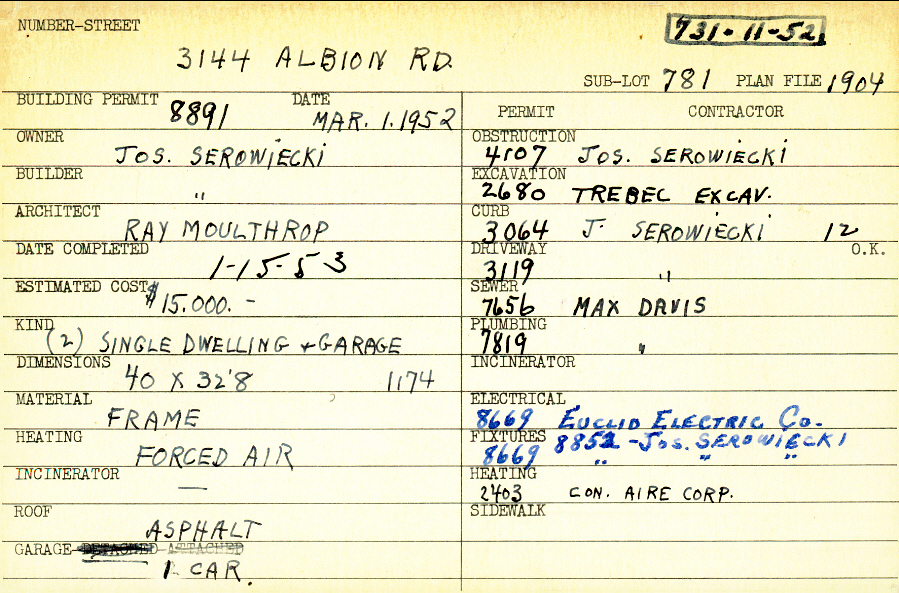 NUMBER-STREET
731-11-52
3144 ALBION RD.
SUB-LOT 781 PLAN FILE 1904
BUILDING PERMIT 8891 DATE MAR. 1. 1952
PERMIT CONTRACTOR
OWNER JOS. SEROWIECKI
OBSTRUCTION 4107 JOS. SEROWIECKI
BUILDER "
EXCAVATION 2680 TREBEL EXCAV.
ARCHITECT RAY MOULTHROP
CURB 3064 J. SEROWIECKI 12
DATE COMPLETED 1-15-53
DRIVEWAY 3119 " O.K.
ESTIMATED COST $15.000.-
SEWER 7656 MAX DAVIS
KIND (2) SINGLE DWELLING + GARAGE
PLUMBING 7819 "
DIMENSIONS 40 X 32'8 1174
INCINERATOR
MATERIAL FRAME
ELECTRICAL 8669 EUCLID ELECTRIC CO.
HEATING FORCED AIR
FIXTURES 8852 - JOS. SEROWIECKI
8669 " " "
INCINERATOR —
HEATING 2403 CON. AIRE CORP.
ROOF ASPHALT
SIDEWALK
GARAGE-DETACHED-ATTACHED
1 CAR.